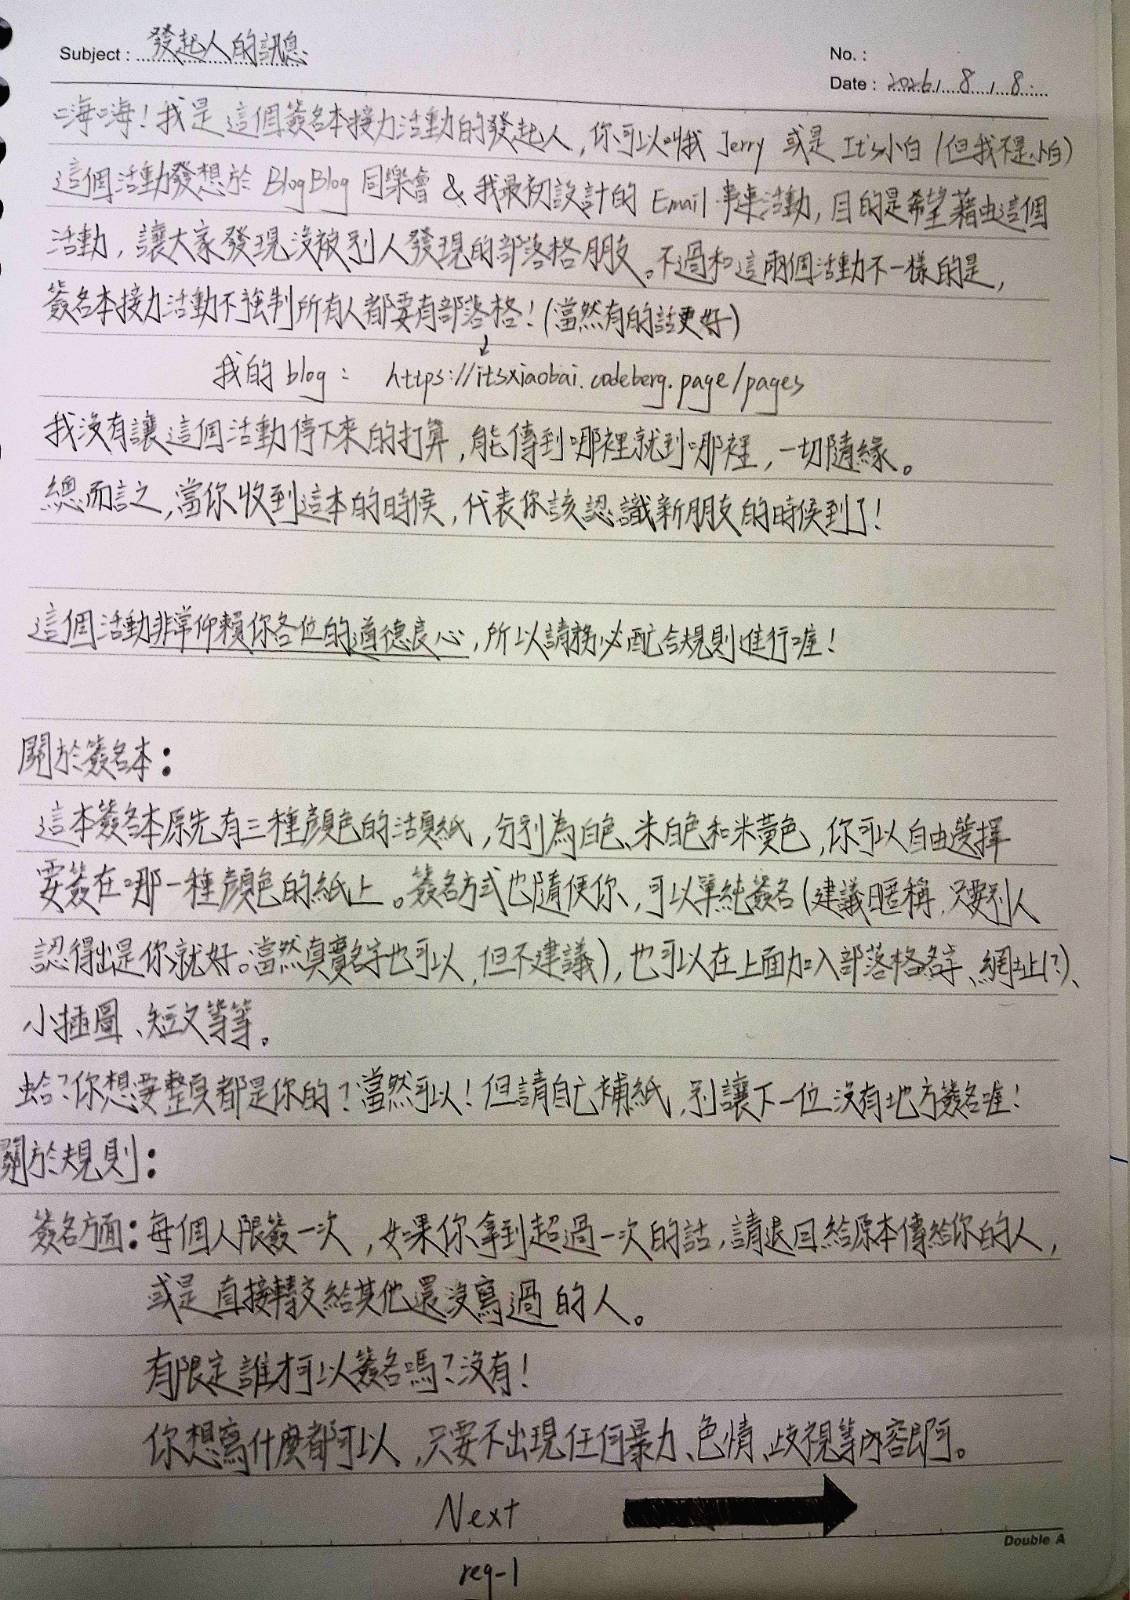 Subject : 發起人的訊息
No. :
Date : 2026 / 8 / 8
嗨嗨！我是這個簽名本接力活動的發起人，你可以叫我 Jerry 或是 It's小白 (但我不是小白)
這個活動發想於 BlogBlog 同樂會 & 我最初設計的 Email 串串活動，目的是希望藉由這個
活動，讓大家發現沒被別人發現的部落格朋友。不過和這兩個活動不一樣的是，
簽名本接力活動不強制所有人都要有部落格！(當然有的話更好)
我的 blog： https://itsxiaobai.codeberg.page/pages
我沒有讓這個活動停下來的打算，能傳到哪裡就到哪裡，一切隨緣。
總而言之，當你收到這本的時候，代表你該認識新朋友的時候到了！
這個活動非常仰賴你各位的道德良心，所以請務必配合規則進行喔！
關於簽名本：
這本簽名本原先有三種顏色的活頁紙，分別為白色、米白色和米黃色，你可以自由選擇
要簽在哪一種顏色的紙上。簽名方式也隨便你、可以單純簽名(建議暱稱，只要別人
認得出是你就好。當然真實名字也可以，但不建議)，也可以在上面加入部落格名字、網址(?)、
小插圖、短文等等。
蛤？你想要整頁都是你的？當然可以！但請自己補紙，別讓下一位沒有地方簽名喔！
關於規則：
簽名方面：每個人限簽一次，如果你拿到超過一次的話，請退回給原本傳給你的人，
或是直接轉交給其他還沒寫過的人。
有限定誰才可以簽名嗎？沒有！
你想寫什麼都可以，只要不出現任何暴力、色情、歧視等內容即可。
Next
Double A
reg-1